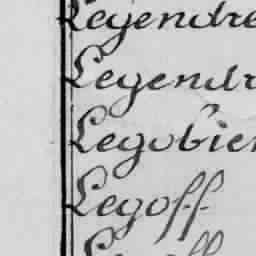 Legendre
Legendr
Legobien
Legoff